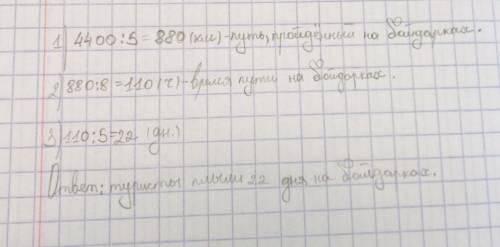 1) 4400:5=880(км)-путь, пройдённый на байдарках.
2) 880:8=110(ч)-время пути на байдарках.
3) 110:5=22 (дн.)
Ответ: туристы плыли 22 дня на байдарках.